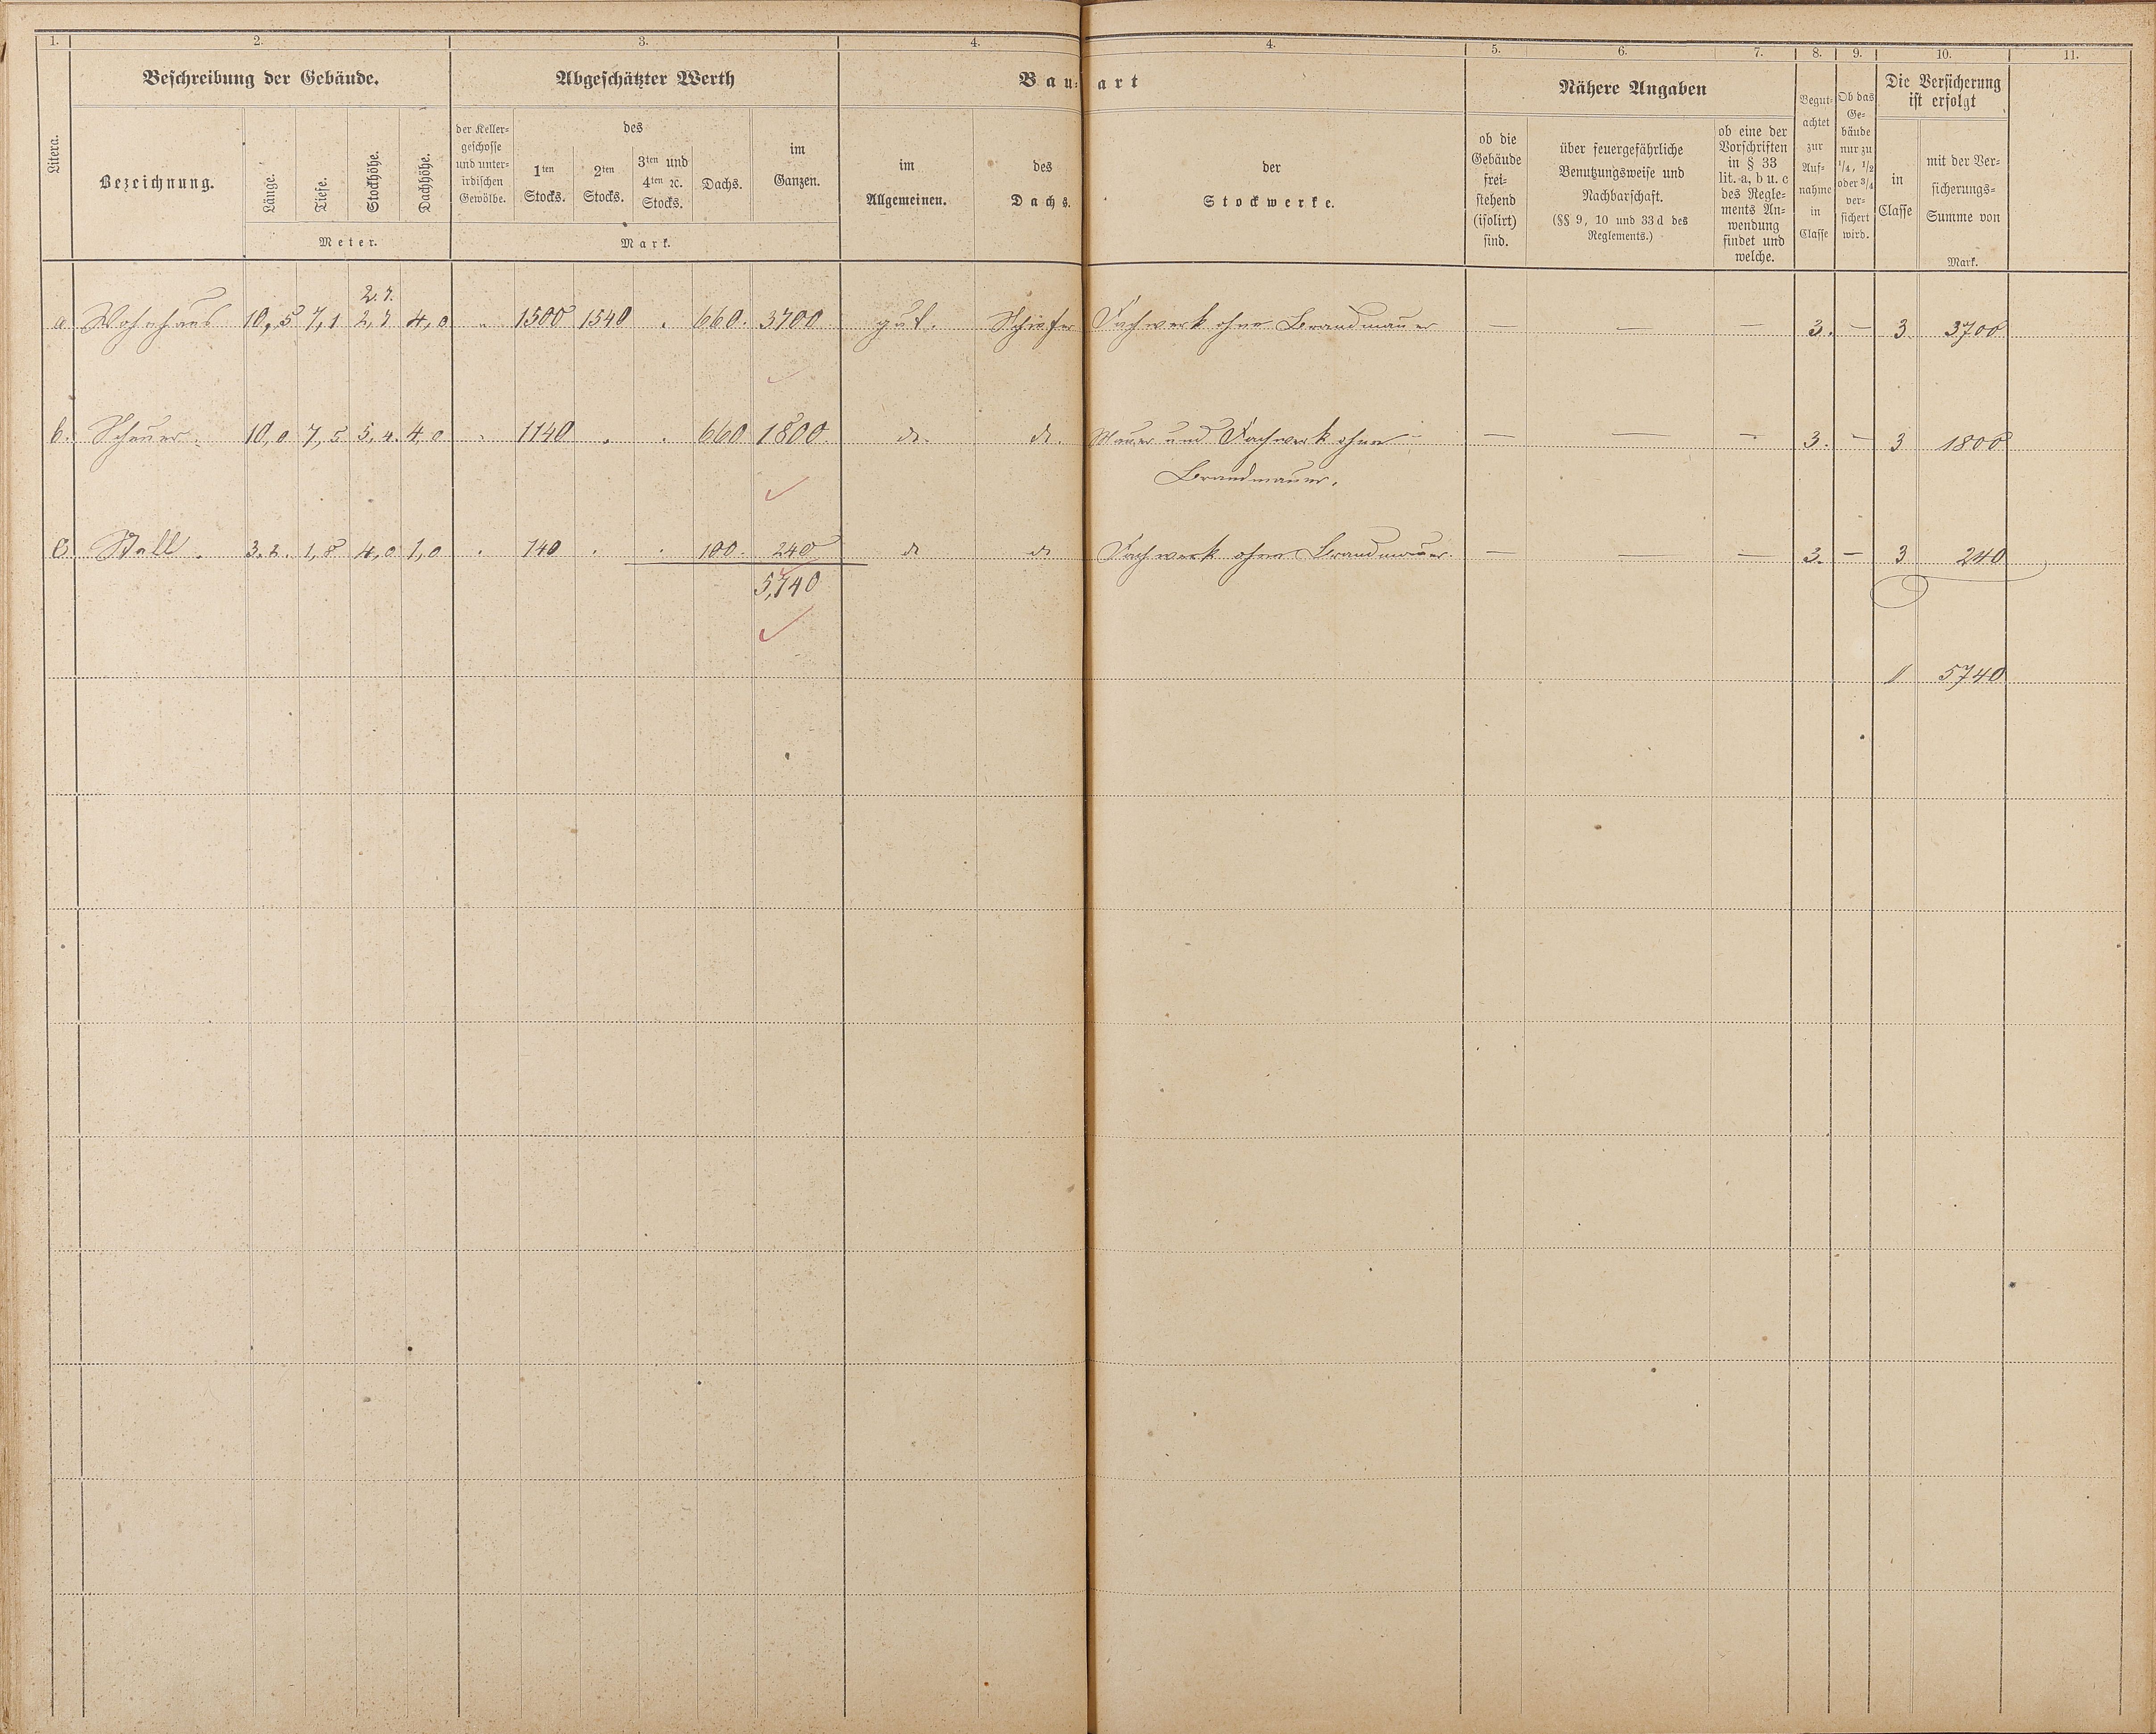 1. 2. 3. 4. 4. 5. 6. 7. 8. 9. 10. 11.
Litera.
Beschreibung der Gebäude.
Bezeichnung.
Länge.
Tiefe.
Stockhöhe.
Dachhöhe.
Meter.
Abgeschätzter Werth
der Keller-
geschosse
und unter-
irdischen
Gewölbe.
des
1ten
Stocks.
2ten
Stocks.
3ten und
4ten ꝛc.
Stocks.
Dachs.
im
Ganzen.
Mark.
Bau-art
im
Allgemeinen.
des
Dachs.
der
Stockwerke.
Nähere Angaben
ob die
Gebäude
frei-
stehend
(isolirt)
sind.
über feuergefährliche
Benutzungsweise und
Nachbarschaft.
(§§ 9, 10 und 33 d des
Reglements.)
ob eine der
Vorschriften
in § 33
lit. a, b u. c
des Regle-
ments An-
wendung
findet und
welche.
Begut-
achtet
zur
Auf-
nahme
in
Classe
Ob das
Ge-
bäude
nur zu
1/4, 1/2
oder 3/4
ver-
sichert
wird.
Die Versicherung
ist erfolgt
in
Classe
mit der Ver-
sicherungs-
Summe von
Mark.
2.7.
a Wohnhaus 10,5 7,1 2,7 4,0 " 1500 1540 . 660. 3700 gut. Schiefer Fachwerk ohne Brandmauer — — — 3. — 3. 3700
b. Scheuer. 10,0 7,5 5,4. 4,0 . 1140 . . 660 1800. do. do. Mauer und Fachwerk ohne — — — 3. — 3 1800
Brandmauer.
C Stall. 3.2. 1,8 4,0 1,0 . 140 . . 100. 240 do do Fachwerk ohne Brandmauer. — — — 3. — 3 240
5,740
// 5740